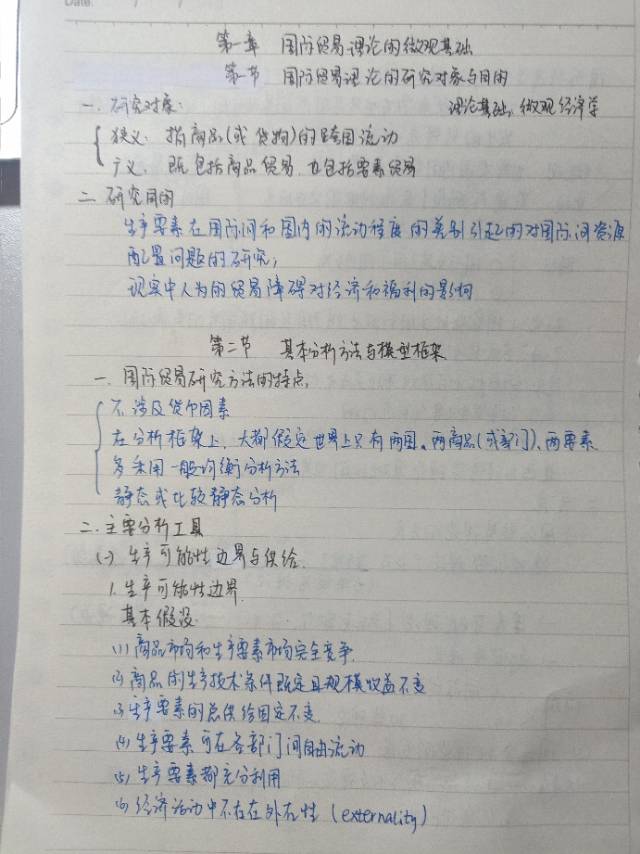 Date:
第一章 国际贸易理论的微观基础
第一节 国际贸易理论的研究对象与目的
一. 研究对象: 理论基础: 微观经济学
狭义: 指商品(或货物)的跨国流动
广义: 既包括商品贸易, 也包括要素贸易
二. 研究目的
生产要素在国际间和国内的流动程度的差别引起的对国际间资源
配置问题的研究;
现实中人为的贸易障碍对经济和福利的影响
第二节 基本分析方法与模型框架
一. 国际贸易研究方法的特点:
不涉及货币因素
在分析框架上, 大都假定世界上只有两国、两商品(或部门)、两要素
多采用一般均衡分析方法
静态或比较静态分析
二. 主要分析工具
(一) 生产可能性边界与供给
1. 生产可能性边界
基本假设:
(1) 商品市场和生产要素市场完全竞争
(2) 商品的生产技术条件既定且规模收益不变
(3) 生产要素的总供给固定不变
(4) 生产要素可在各部门间自由流动
(5) 生产要素都充分利用
(6) 经济活动中不存在外在性 (externality)